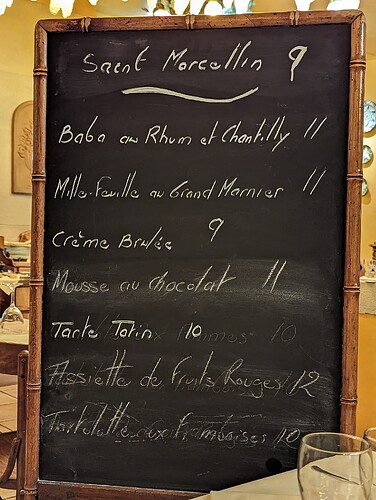 Saint Marcellin 9
Baba au Rhum et Chantilly 11
Mille-Feuille au Grand Marnier 11
Crème Brulée 9
Mousse au chocolat 11
Tarte Tatin 10
Assiette de Fruits Rouges 12
Tartelette aux Framboises 10